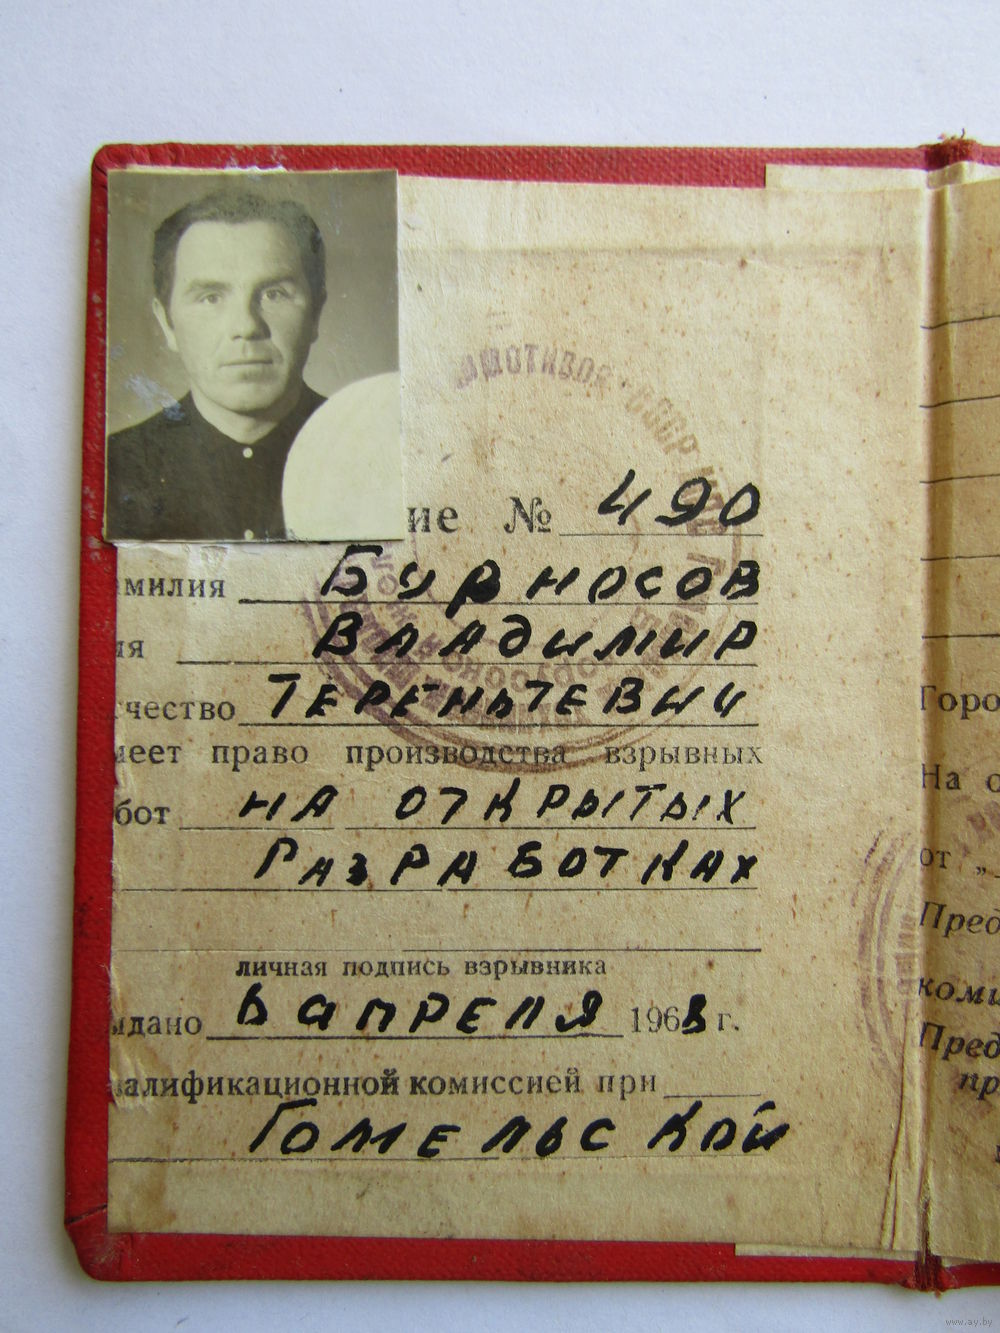 ие № 490
милия Бурносов
ия Владимир
чество Терентьевич
меет право производства взрывных
бот на открытых
разработках
личная подпись взрывника
ыдано 6 апреля 1968 г.
валификационной комиссией при
Гомельской
СССР
Горо
На о
от „
Пред
коми
Пред
пр
www.ay.by